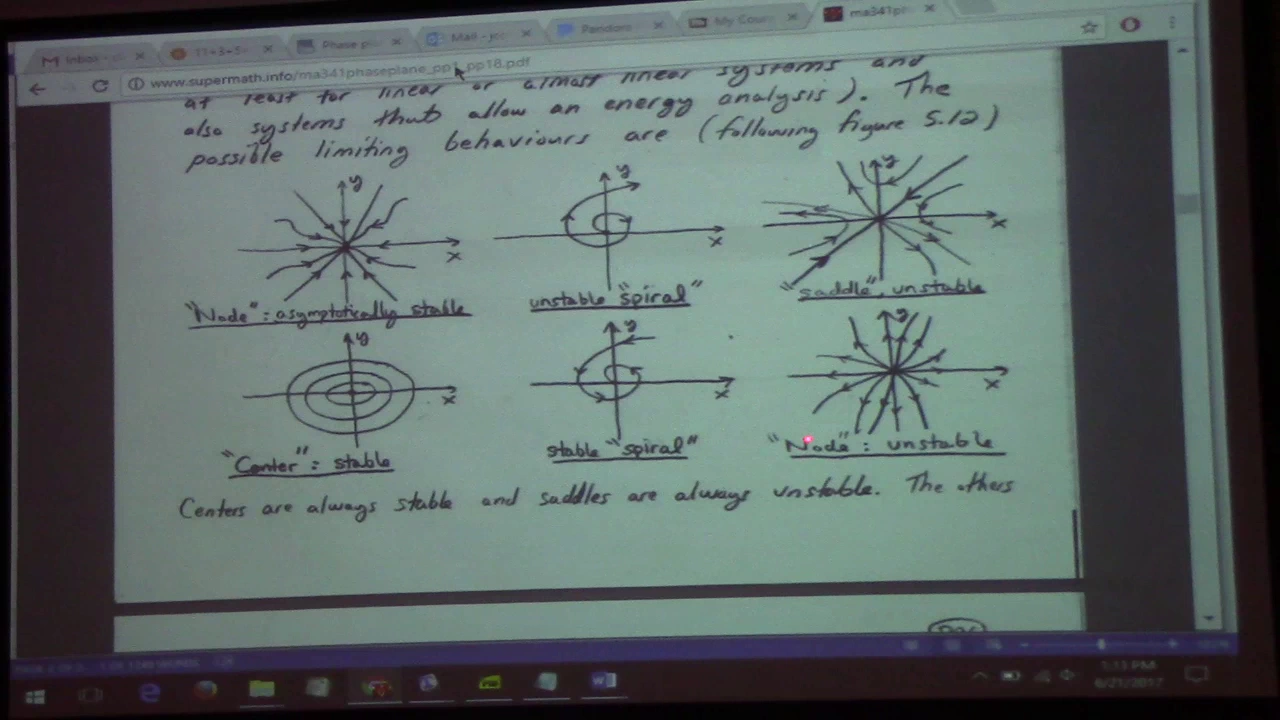 Inbox
11+3+5
Phase pl
Mail - jcc
Pandora
My Cours
ma341pl
www.supermath.info/ma341phaseplane_pp1_pp18.pdf
at least for linear or almost linear systems and
also systems that allow an energy analysis). The
possible limiting behaviours are (following figure 5.12)
y
x
"Node": asymptotically stable
y
x
unstable "spiral"
y
x
"saddle", unstable
y
x
"Center": stable
y
x
stable "spiral"
y
x
"Node": unstable
Centers are always stable and saddles are always unstable. The others
1:13 PM
6/21/2017